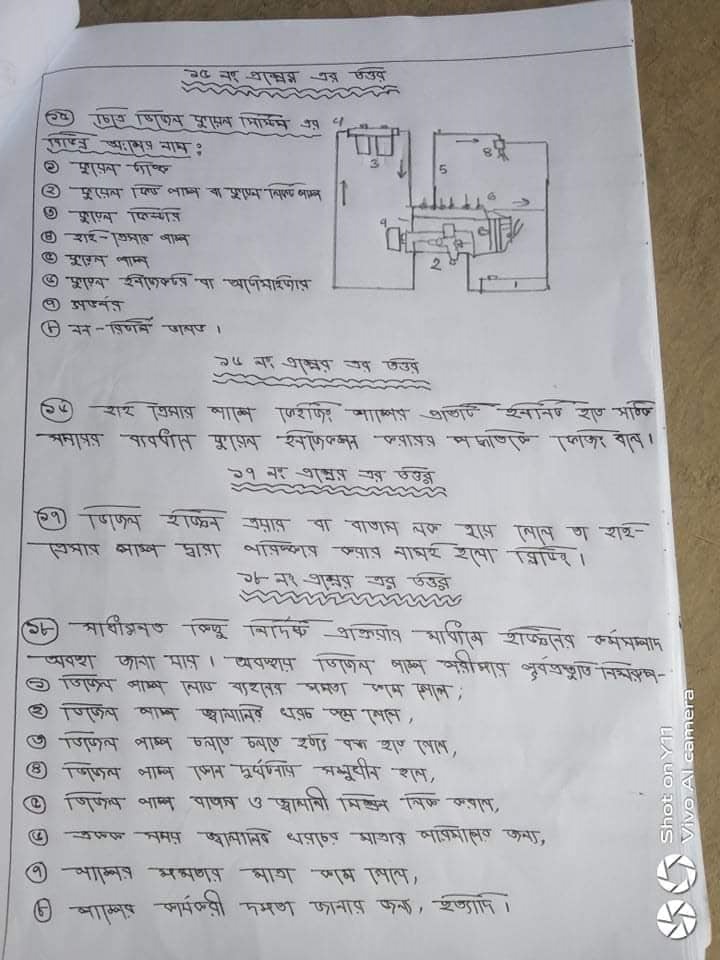 ১৫ নং প্রশ্নের এর উত্তর
১৫ চিত্র ডিজেল ফুয়েল সিস্টেম এর
বিভিন্ন অংশের নাম :
১ ফুয়েল ট্যাংক
২ ফুয়েল ফিড পাম্প বা ফুয়েল লিফট পাম্প
৩ ফুয়েল ফিল্টার
৪ হাই-প্রেসার পাম্প
৫ ফুয়েল পাম্প
৬ ফুয়েল ইনজেক্টর বা অ্যাটমাইজার
৭ গভর্নর
৮ নন-রিটার্ন ভালভ ।
4
3
5
8
6
9
2
1
১৬ নং প্রশ্নের এর উত্তর
১৬ হাই প্রেসার পাম্পে পাম্পের প্রতিটি হতে সঠিক
সময়ের ব্যবধানে ফুয়েল ইনজেকশন করানোর পদ্ধতিকে ফেজিং বলে ।
১৭ নং প্রশ্নের এর উত্তর
১৭ ডিজেল ইঞ্জিন এয়ার বা বাতাস লক হয়ে গেলে তা হাই-
প্রেসার পাম্প দ্বারা পরিষ্কার করার নামই হলো ব্লিডিং ।
১৮ নং প্রশ্নের এর উত্তর
১৮ সাধারনত কিছু নির্দিষ্ট প্রক্রিয়ার মাধ্যমে ইঞ্জিনের কর্মসম্পাদন
অবস্থা জানা যায় । অবস্থায় ডিজেল পাম্প পরীক্ষার পূর্বপ্রস্তুতি নিম্নরূপ-
১ ডিজেল পাম্প লোড বহনের ক্ষমতা কমে গেলে ;
২ ডিজেল পাম্প জ্বালানির খরচ বেড়ে গেলে,
৩ ডিজেল পাম্প চলতে চলতে হঠাৎ বন্ধ হয়ে গেলে,
৪ ডিজেল পাম্প কোন দুর্ঘটনার সম্মুখীন হলে,
৫ ডিজেল পাম্প বাতাস ও জ্বালানী মিশ্রন ঠিক করতে,
৬ একক সময় জ্বালানির খরচের মাত্রার পরিমাপের জন্য,
৭ পাম্পের ক্ষমতার মাত্রা কমে গেলে,
৮ পাম্পের কার্যকরী দক্ষতা জানার জন্য, ইত্যাদি ।
Shot on Y11
Vivo AI camera